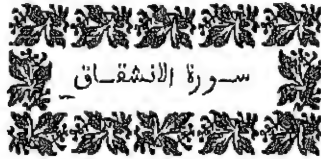 سورة الانشقاق